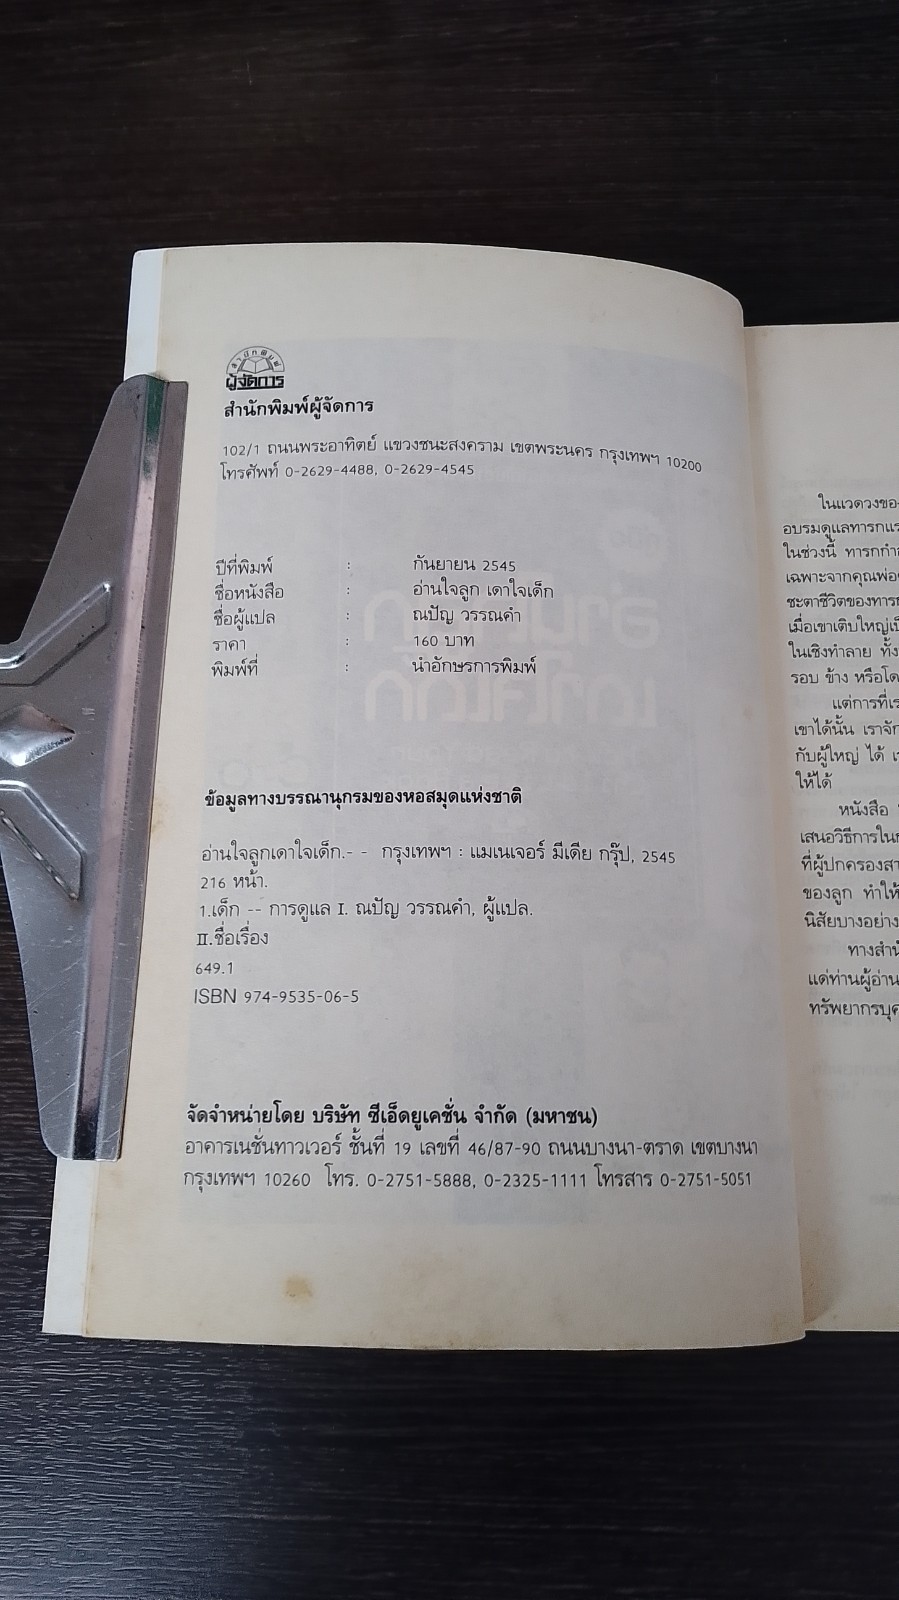 สำนักพิมพ์
ผู้จัดการ
สำนักพิมพ์ผู้จัดการ
102/1 ถนนพระอาทิตย์ แขวงชนะสงคราม เขตพระนคร กรุงเทพฯ 10200
โทรศัพท์ 0-2629-4488, 0-2629-4545
ปีที่พิมพ์ : กันยายน 2545
ชื่อหนังสือ : อ่านใจลูก เดาใจเด็ก
ชื่อผู้แปล : ณปัญ วรรณคำ
ราคา : 160 บาท
พิมพ์ที่ : นำอักษรการพิมพ์
ข้อมูลทางบรรณานุกรมของหอสมุดแห่งชาติ
อ่านใจลูกเดาใจเด็ก.- - กรุงเทพฯ : แมเนเจอร์ มีเดีย กรุ๊ป, 2545
216 หน้า.
1.เด็ก -- การดูแล I. ณปัญ วรรณคำ, ผู้แปล.
II.ชื่อเรื่อง
649.1
ISBN 974-9535-06-5
จัดจำหน่ายโดย บริษัท ซีเอ็ดยูเคชั่น จำกัด (มหาชน)
อาคารเนชั่นทาวเวอร์ ชั้นที่ 19 เลขที่ 46/87-90 ถนนบางนา-ตราด เขตบางนา
กรุงเทพฯ 10260 โทร. 0-2751-5888, 0-2325-1111 โทรสาร 0-2751-5051
ในแวดวงของ
อบรมดูแลทารกแร
ในช่วงนี้ ทารกกำล
เฉพาะจากคุณพ่อ
ชะตาชีวิตของทารก
เมื่อเขาเติบใหญ่เป็
ในเชิงทำลาย ทั้ง
รอบ ข้าง หรือโด
แต่การที่เร
เขาได้นั้น เราจัก
กับผู้ใหญ่ ได้
ให้ได้
หนังสือ
เสนอวิธีการใน
ที่ผู้ปกครองสา
ของลูก ทำให้
นิสัยบางอย่าง
ทางสำนั
แด่ท่านผู้อ่าน
ทรัพยากรบุค